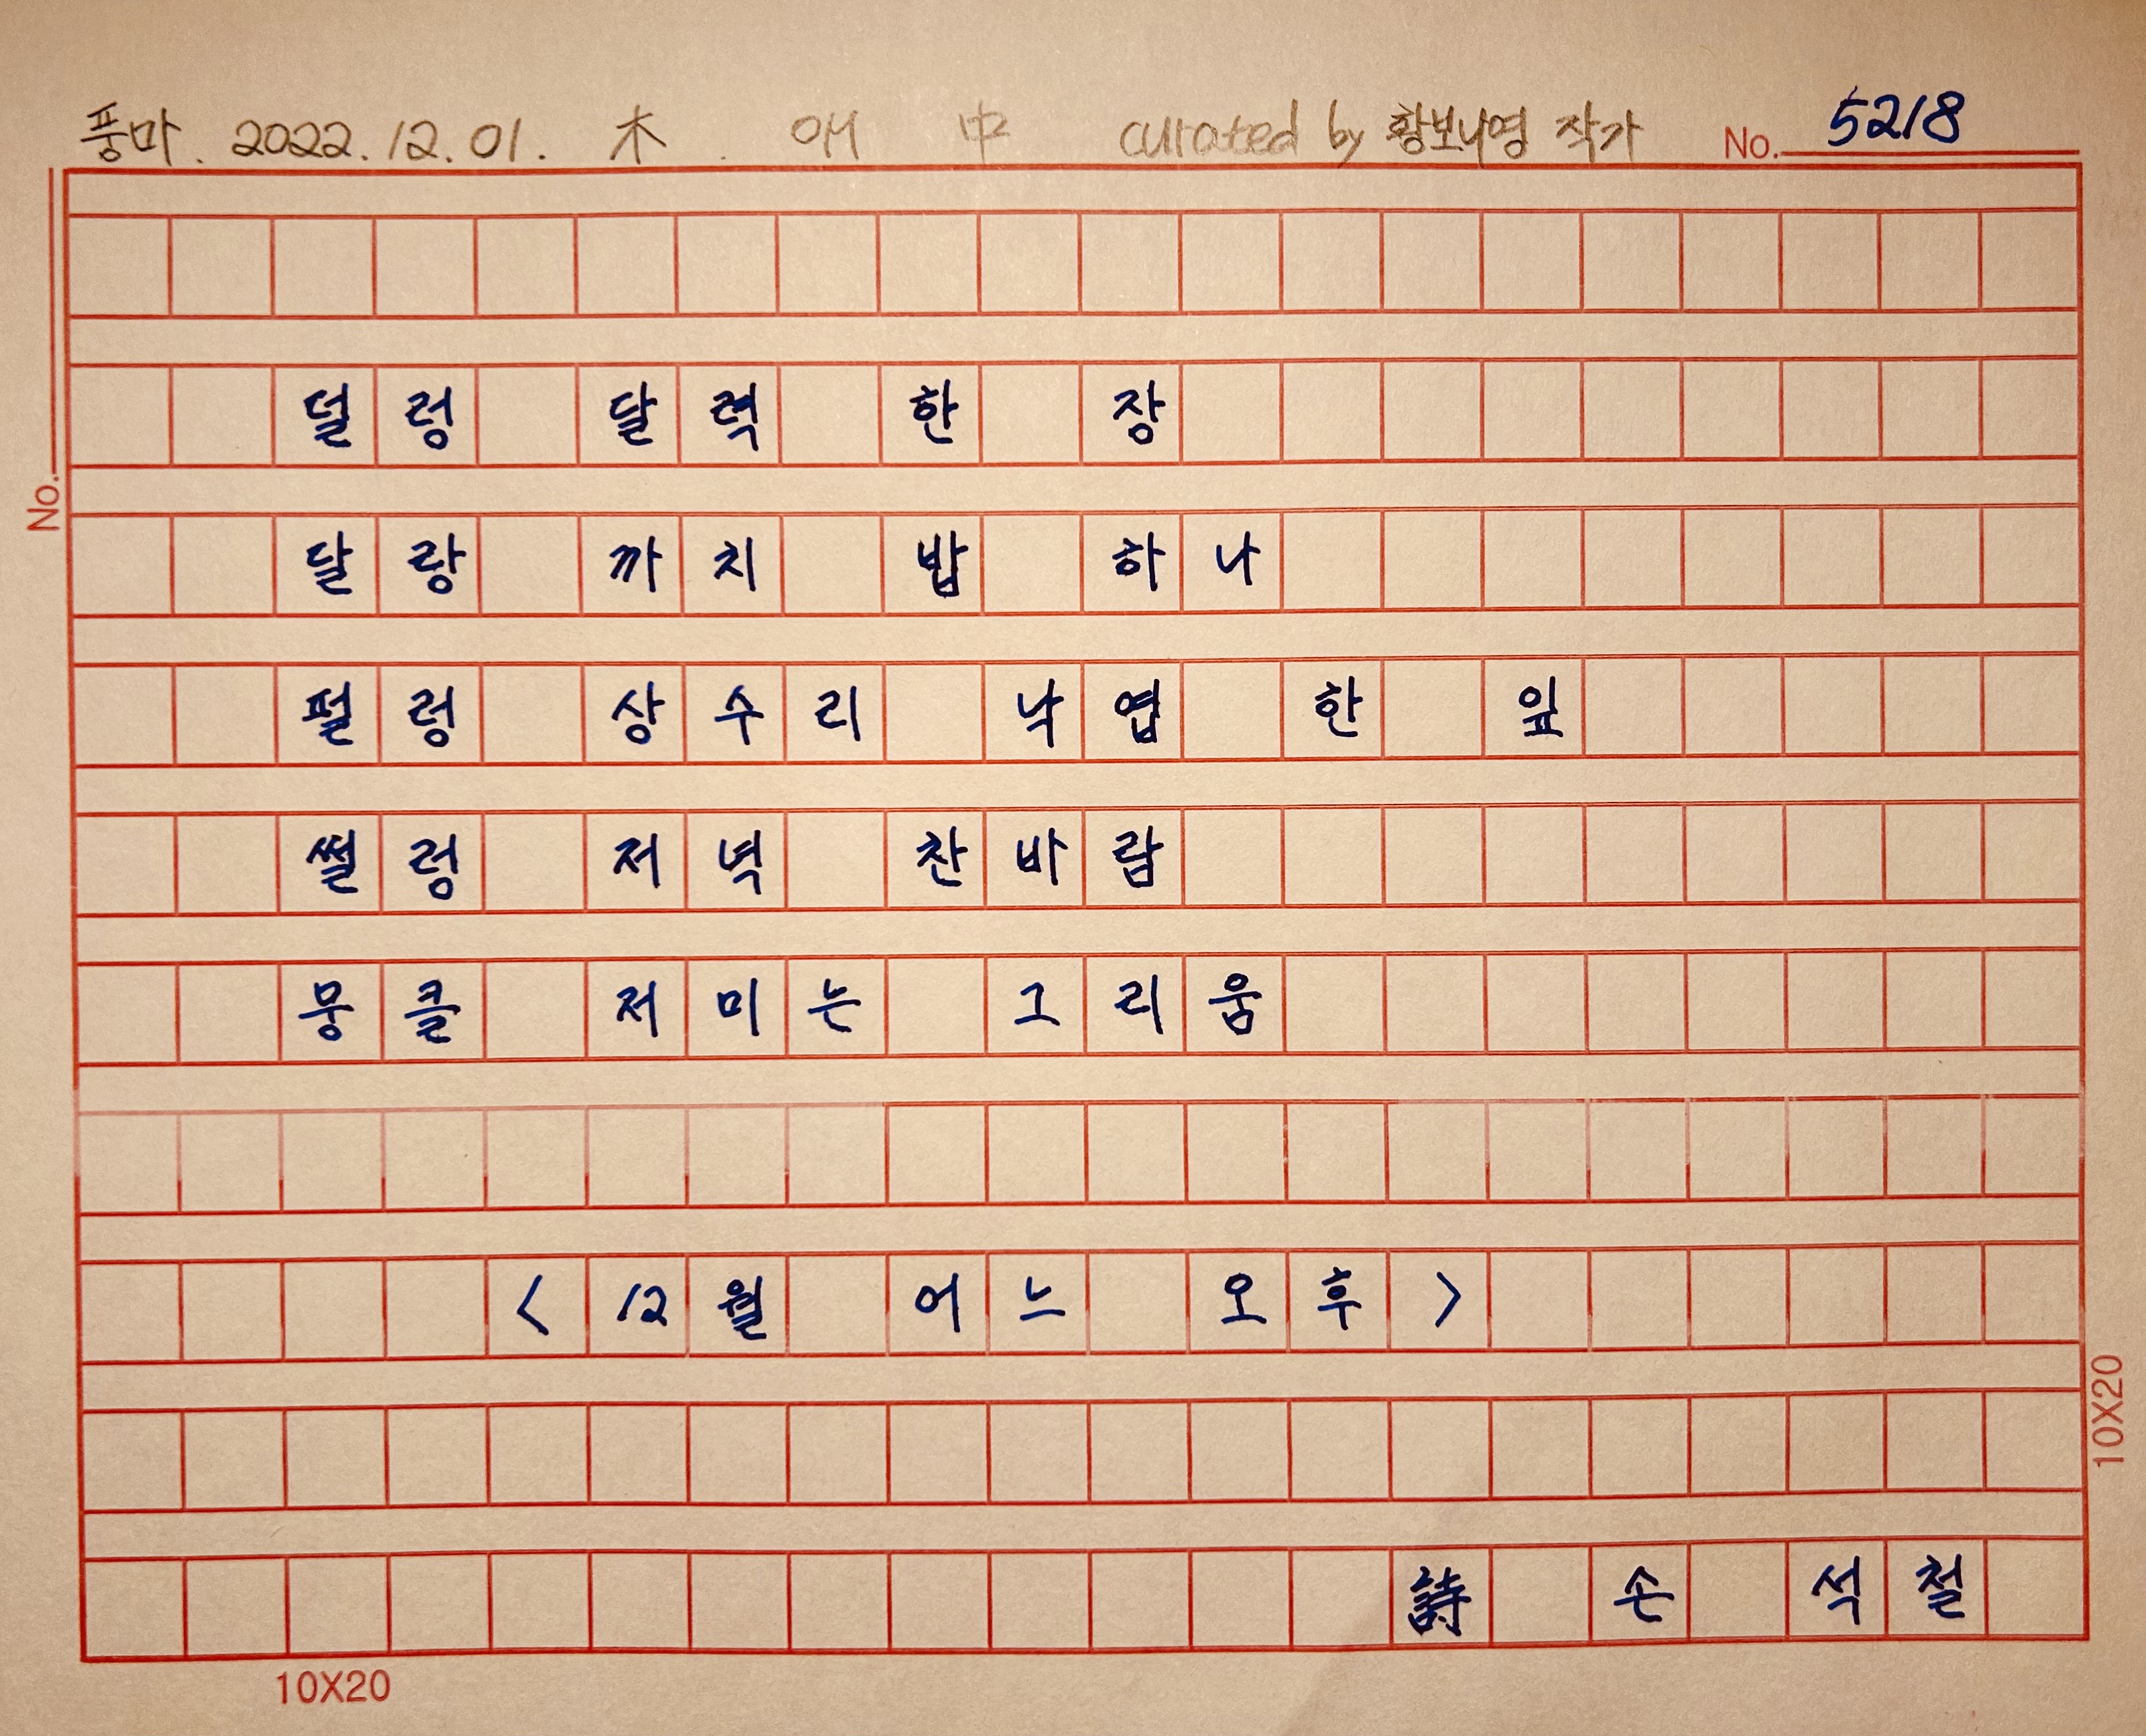 풍마. 2022.12.01. 木. 애 中 curated by 황보나영 작가 No. 5218
덜렁 달력 한 장
No.
달랑 까치 밥 하나
펄렁 상수리 낙엽 한 잎
썰렁 저녁 찬바람
뭉클 저미는 그리움
<12월 어느 오후>
10X20
詩 손 석철
10X20